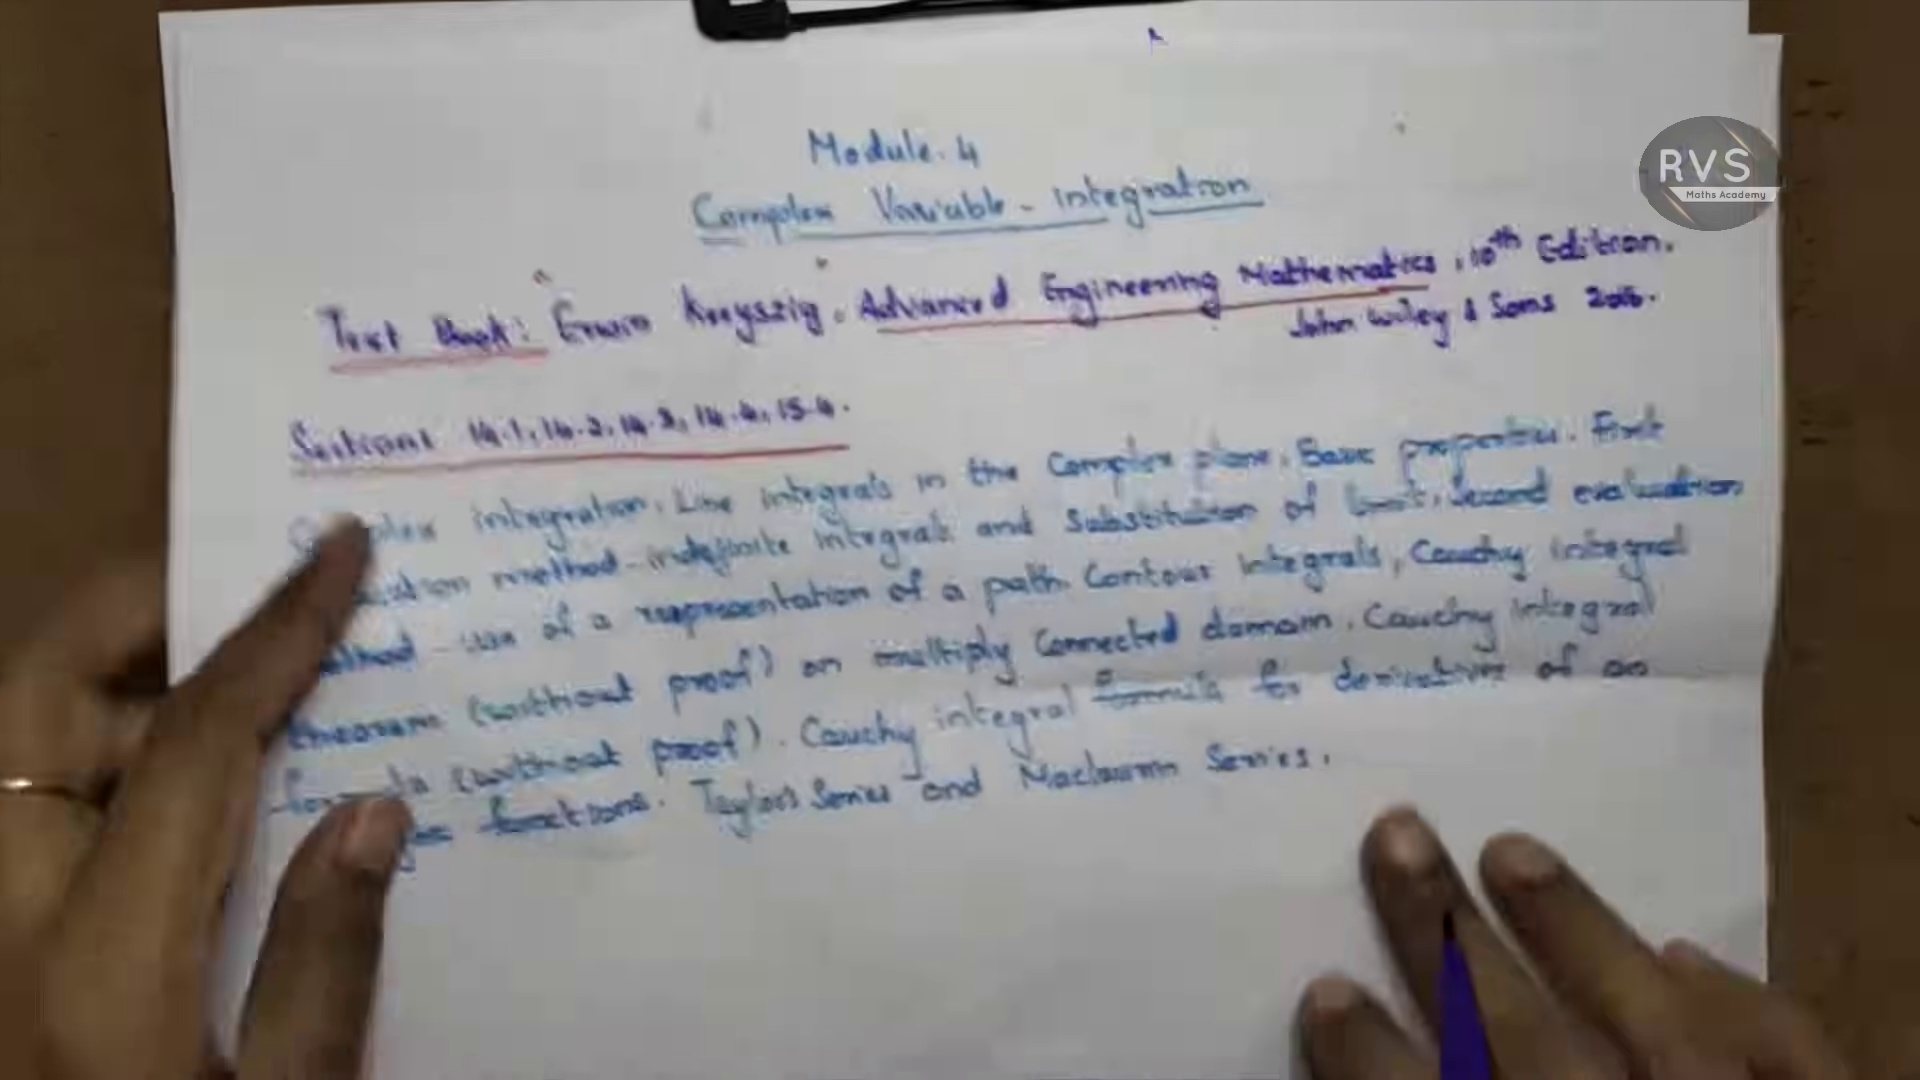 Module. 4
Complex Variable - integration
RVS
Maths Academy
Text Book: Erwin Kreyszig, Advanced Engineering Mathematics, 10th Edition.
John Wiley & Sons
Sections 14.1, 14.2, 14.3, 14.4, 15.4.
integration, Line integrals in the Complex plane, Basic properties. First
method - indefinite integrals and Substitution of limit, Second evaluation
method - use of a representation of a path. Contour integrals, Cauchy integral
theorem (without proof) on multiply Connected domain. Cauchy integral
formula (without proof). Cauchy integral formula for derivatives of an
functions. Taylors Series and Maclaurin Series.